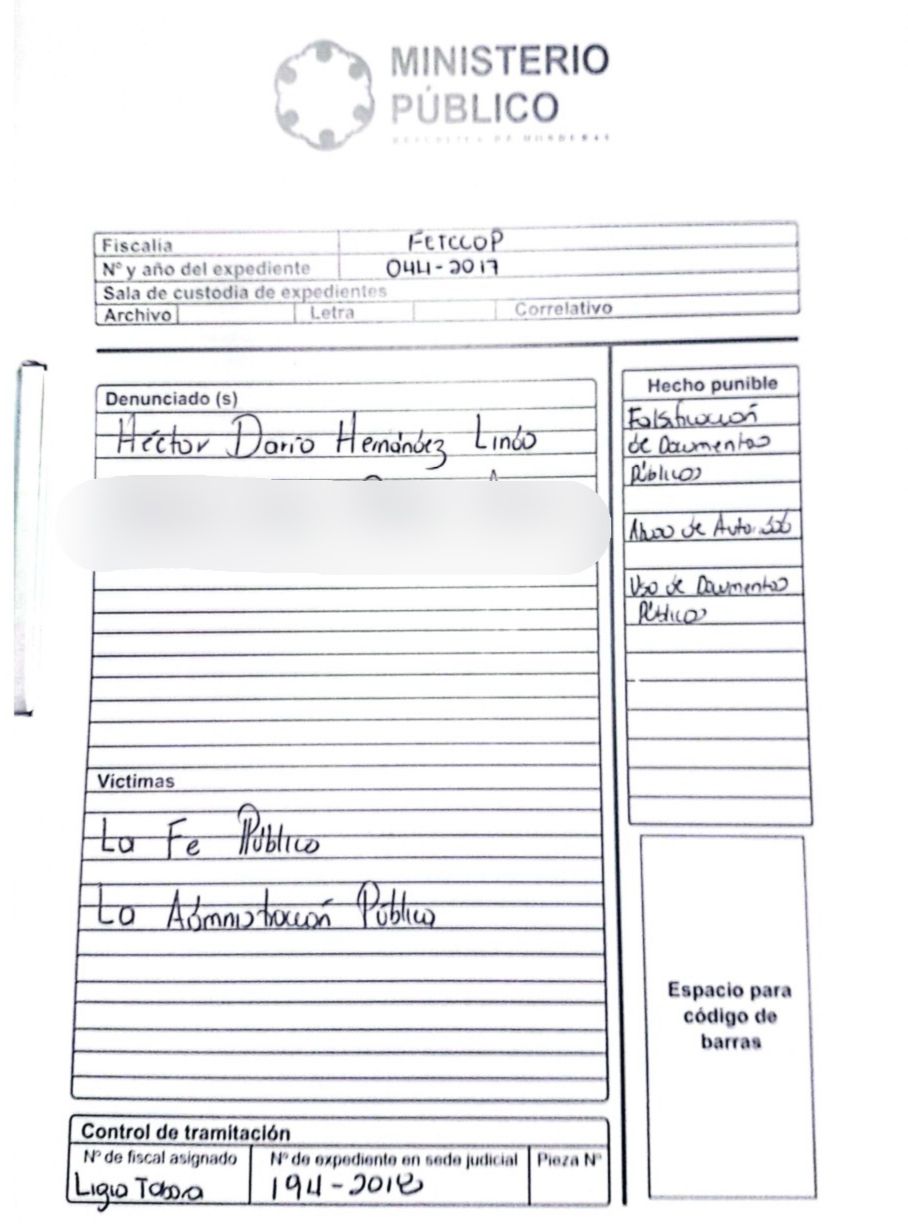 MINISTERIO
PÚBLICO
REPÚBLICA DE HONDURAS
Fiscalía FETCCOP
Nº y año del expediente 044-2017
Sala de custodia de expedientes
Archivo Letra Correlativo
Denunciado (s)
Héctor Darío Hernández Lindo
Hecho punible
Falsificación
de Documentos
Públicos
Abuso de Autoridad
Uso de Documentos
Públicos
Víctimas
La Fe Pública
La Administración Pública
Espacio para
código de
barras
Control de tramitación
Nº de fiscal asignado Nº de expediente en sede judicial Pieza Nº
Ligia Tabora 194-2018